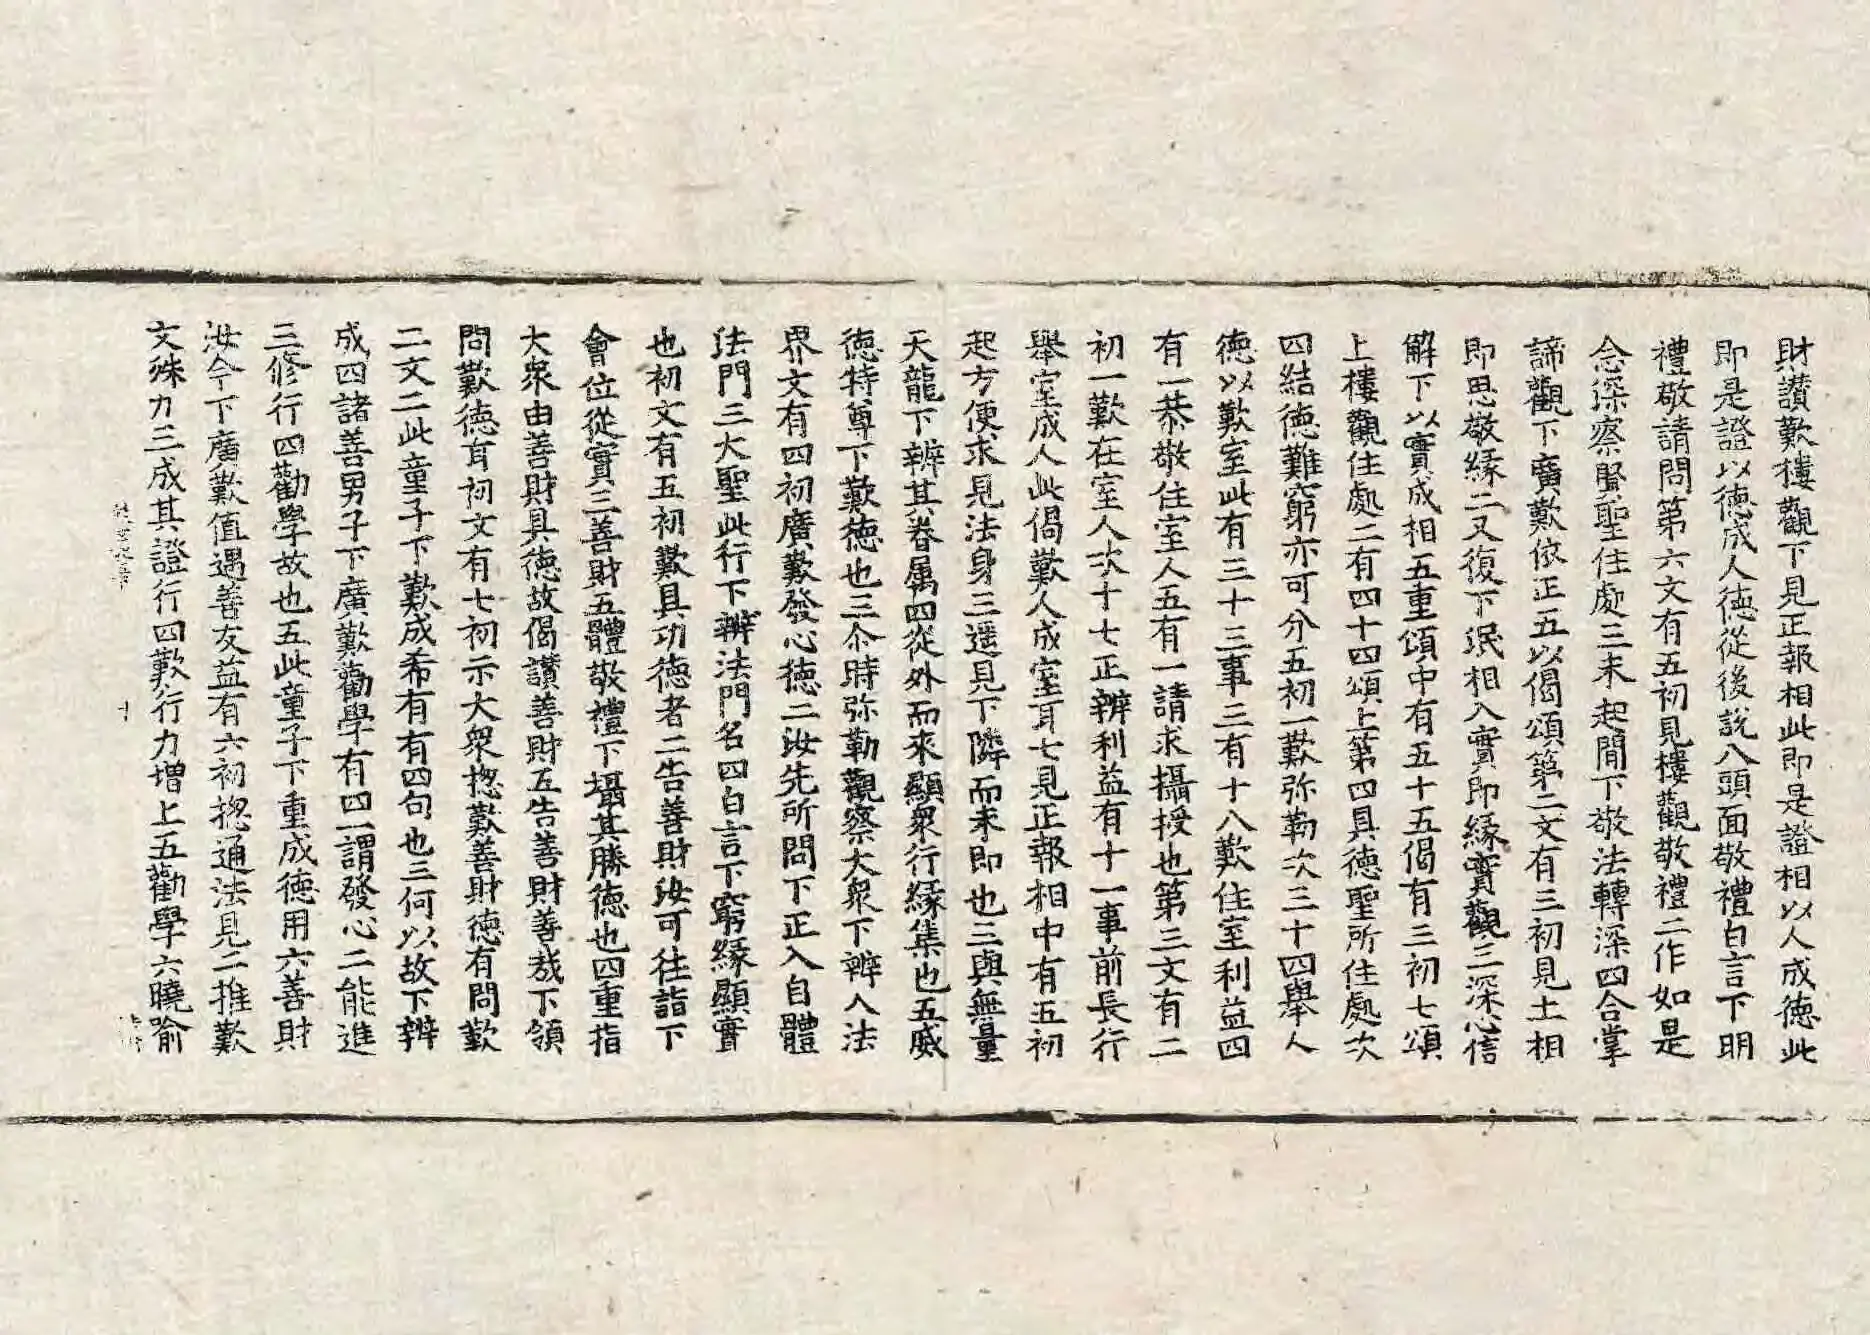 財讃歎樓觀下見正報相此即是證相以人成德此
即是證以德成人德從後說八頭面敬禮白言下明
禮敬請問第六文有五初見樓觀敬禮二作如是
念深察賢聖住處三未起間下敬法轉深四合掌
諦觀下廣歎依正五以偈頌第二文有三初見土相
即思敬緣二又復下泯相入實即緣實觀三深心信
解下以實成相五重頌中有五十五偈有三初七頌
上樓觀住處二有四十四頌上第四具德聖所住處次
四結德難窮亦可分五初一歎弥勒次三十四舉人
德以歎室此有三十三事三有十八歎住室利益四
有一恭敬住室人五有一請求攝授也第三文有二
初一歎在室人次十七正辨利益有十一事前長行
舉室成人此偈歎人成室耳七見正報相中有五初
起方便求見法身三遥見下隣而未即也三與無量
天龍下辨其眷属四從外而來顯衆行緣集也五威
德特尊下歎德也三尒時弥勒觀察大衆下辨入法
界文有四初廣歎發心德二汝先所問下正入自體
法門三大聖此行下辨法門名四白言下窮緣顯實
也初文有五初歎具功德者二告善財汝可往詣下
會位從實三善財五體敬禮下堪其勝德也四重指
大衆由善財具德故偈讃善財五告善財善哉下領
問歎德耳初文有七初示大衆揔歎善財德有問歎
二文二此童子下歎成希有有四句也三何以故下辨
成四諸善男子下廣歎勸學有四一謂發心二能進
三修行四勸學故也五此童子下重成德用六善財
汝今下廣歎值遇善友益有六初揔通法見二推歎
文殊力三成其證行四歎行力增上五勸學六曉喻
十